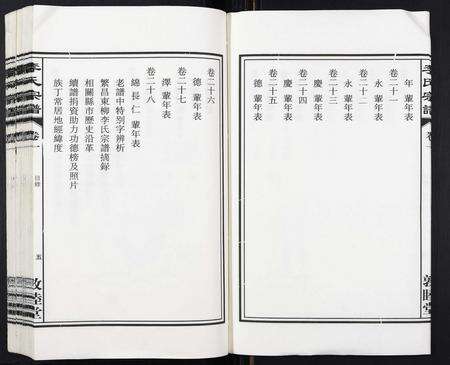 年 輩年表
卷二十一
永 輩年表
卷二十二
永 輩年表
卷二十三
慶 輩年表
卷二十四
慶 輩年表
卷二十五
德 輩年表
卷二十六
德 輩年表
卷二十七
澤 輩年表
卷二十八
綿 長 仁 輩年表
老譜中特別字辨析
繁昌東柳李氏宗譜摘録
相關縣市歷史沿革
續譜捐資助力功德榜及照片
族丁常居地經緯度
李氏宗譜
卷一
目錄
五
敦睦堂
李氏宗譜
卷一
敦睦堂